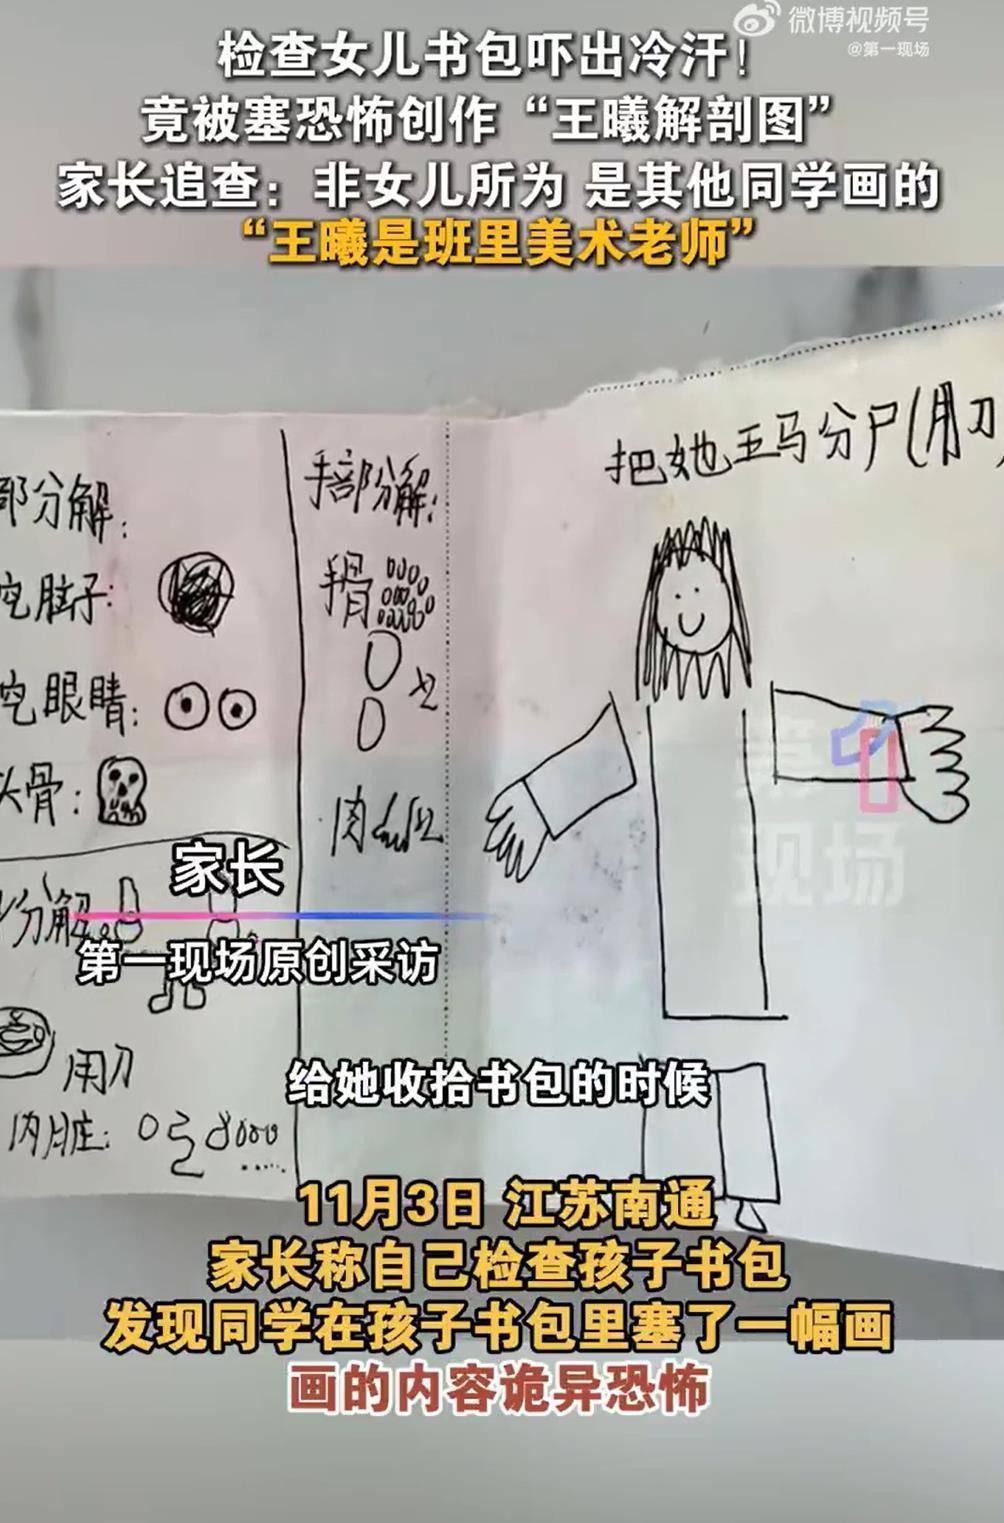 微博视频号
@第一现场
检查女儿书包吓出冷汗!
竟被塞恐怖创作“王曦解剖图”
家长追查：非女儿所为 是其他同学画的
“王曦是班里美术老师”
把她五马分尸(用刀)
部分解:
挖脑子:
挖眼睛:
头骨:
分解
用刀
内脏:
手部分解:
手骨
x2
肉
x2
第一
现场
家长
第一现场原创采访
给她收拾书包的时候
11月3日 江苏南通
家长称自己检查孩子书包
发现同学在孩子书包里塞了一幅画
画的内容诡异恐怖